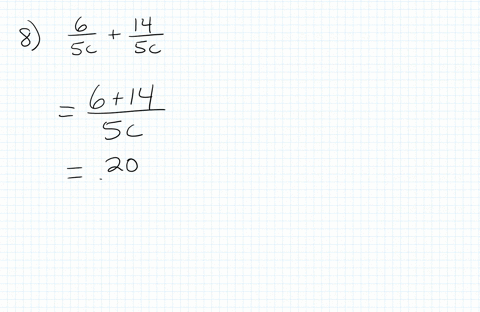 8) 6/5c + 14/5c
= 6+14/5c
= 20